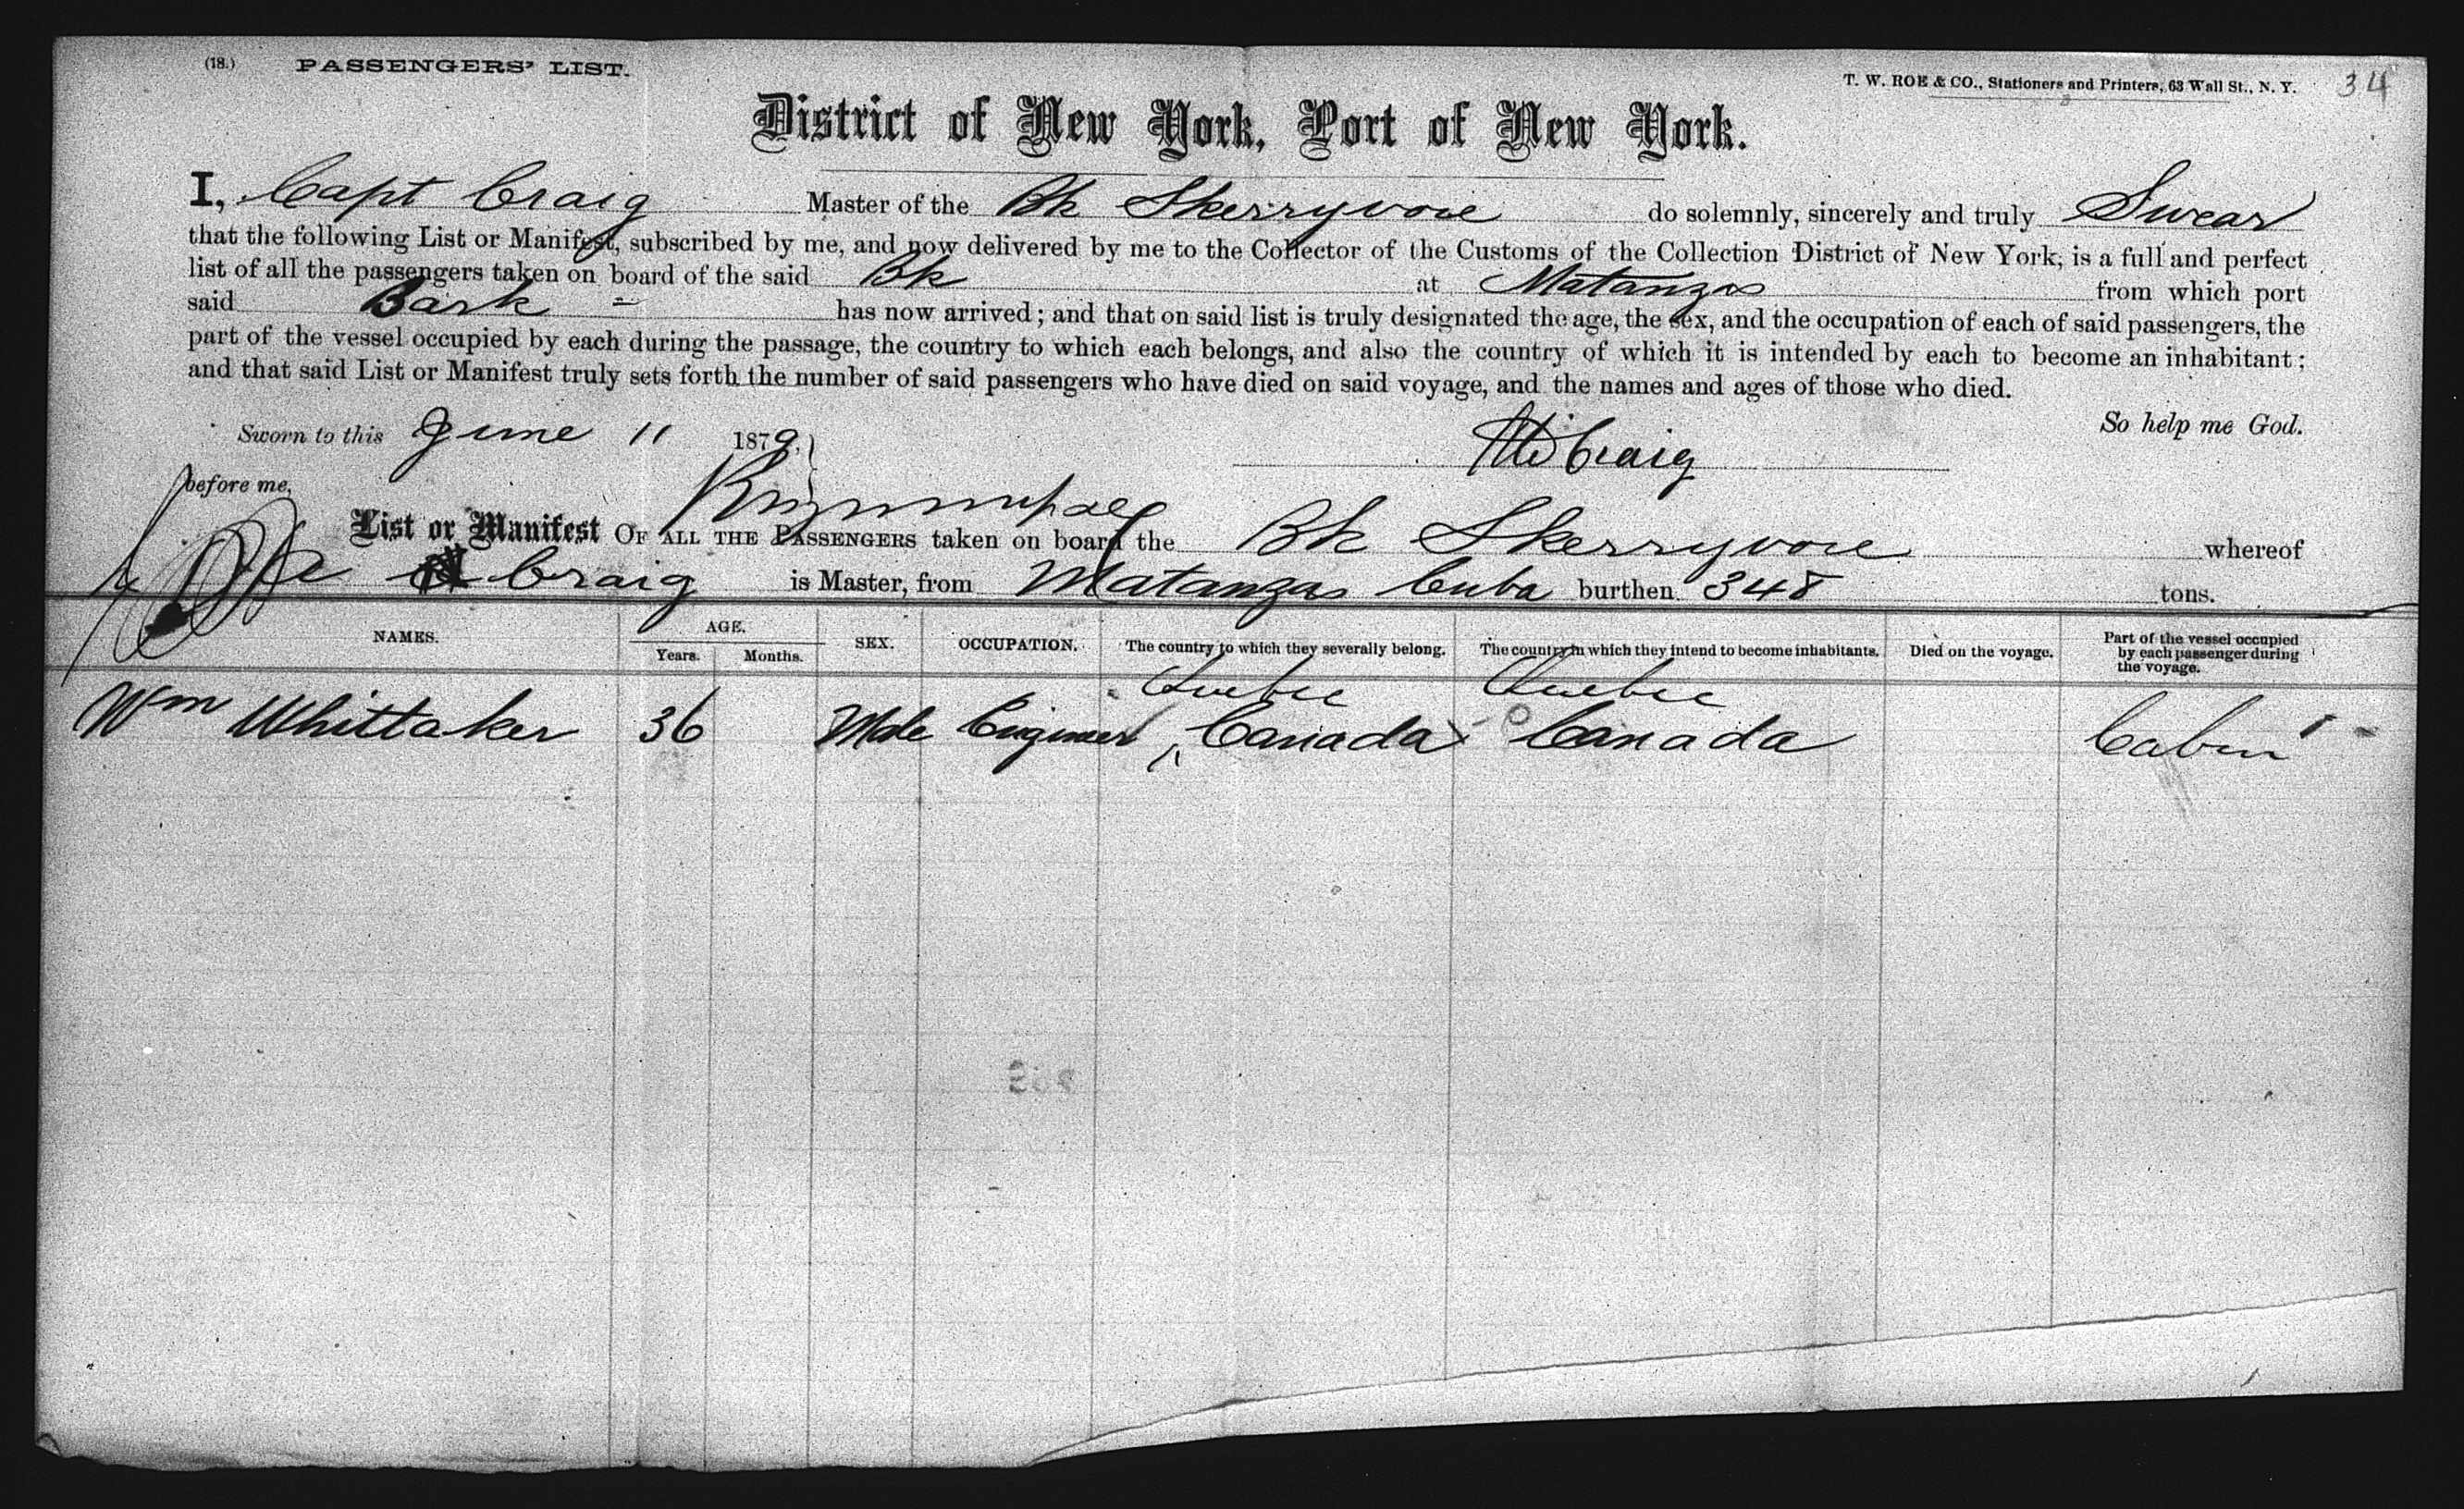 (18.) PASSENGERS' LIST.
T. W. ROE & CO., Stationers and Printers, 63 Wall St., N. Y. 34
District of New York, Port of New York.
I, Capt Craig Master of the Bk Skerryvore do solemnly, sincerely and truly Swear
that the following List or Manifest, subscribed by me, and now delivered by me to the Collector of the Customs of the Collection District of New York, is a full and perfect
list of all the passengers taken on board of the said Bk at Matanzas from which port
said Bark has now arrived; and that on said list is truly designated the age, the sex, and the occupation of each of said passengers, the
part of the vessel occupied by each during the passage, the country to which each belongs, and also the country of which it is intended by each to become an inhabitant;
and that said List or Manifest truly sets forth the number of said passengers who have died on said voyage, and the names and ages of those who died.
So help me God.
Sworn to this June 11 1879,
Craig
before me,
List or Manifest OF ALL THE PASSENGERS taken on board the Bk Skerryvore whereof
Craig is Master, from Matanzas Cuba burthen 348 tons.
NAMES. AGE. Years. Months. SEX. OCCUPATION. The country to which they severally belong. The country in which they intend to become inhabitants. Died on the voyage. Part of the vessel occupied by each passenger during the voyage.
Quebec Quebec
Wm Whittaker 36 Male Engineer Canada Canada Cabin